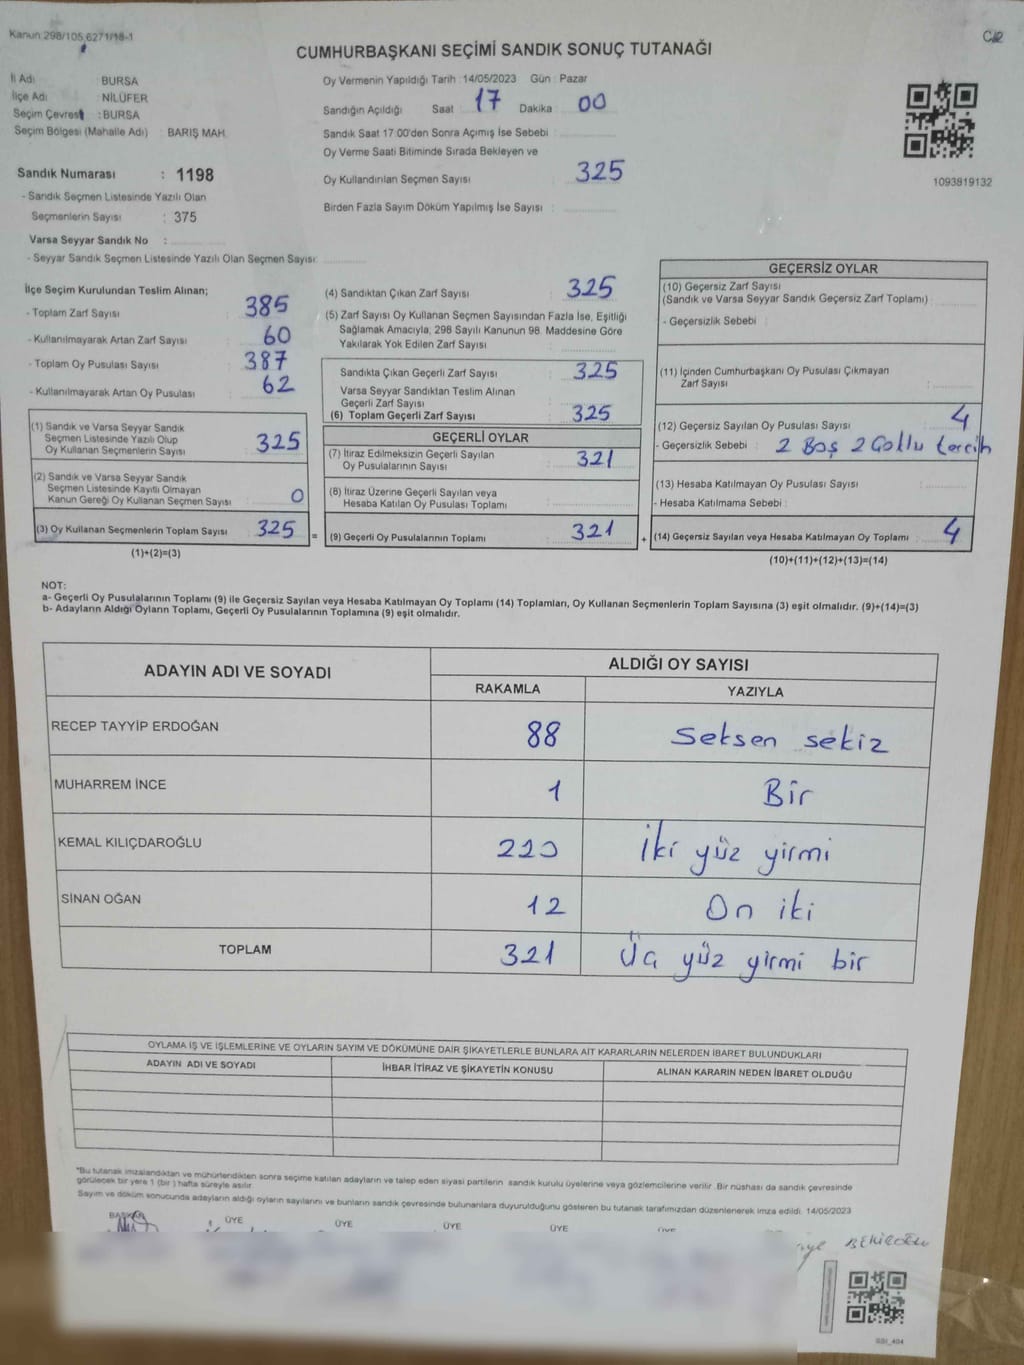 Kanun 298/105,6271/18-1
CUMHURBAŞKANI SEÇİMİ SANDIK SONUÇ TUTANAĞI
İl Adı BURSA
İlçe Adı NİLÜFER
Seçim Çevresi : BURSA
Seçim Bölgesi (Mahalle Adı) BARIŞ MAH.
Sandık Numarası : 1198
- Sandık Seçmen Listesinde Yazılı Olan
Seçmenlerin Sayısı : 375
Varsa Seyyar Sandık No :
- Seyyar Sandık Seçmen Listesinde Yazılı Olan Seçmen Sayısı:
Oy Vermenin Yapıldığı Tarih :14/05/2023 Gün : Pazar
Sandığın Açıldığı Saat 17 Dakika 00
Sandık Saat 17:00'den Sonra Açımış İse Sebebi :
Oy Verme Saati Bitiminde Sırada Bekleyen ve
Oy Kullandırılan Seçmen Sayısı 325
Birden Fazla Sayım Döküm Yapılmış İse Sayısı :
1093819132
İlçe Seçim Kurulundan Teslim Alınan;
- Toplam Zarf Sayısı 385
- Kullanılmayarak Artan Zarf Sayısı : 60
- Toplam Oy Pusulası Sayısı : 387
- Kullanılmayarak Artan Oy Pusulası : 62
(1) Sandık ve Varsa Seyyar Sandık
Seçmen Listesinde Yazılı Olup
Oy Kullanan Seçmenlerin Sayısı : 325
(2) Sandık ve Varsa Seyyar Sandık
Seçmen Listesinde Kayıtlı Olmayan
Kanun Gereği Oy Kullanan Seçmen Sayısı : 0
(3) Oy Kullanan Seçmenlerin Toplam Sayısı : 325
(1)+(2)=(3)
(4) Sandıktan Çıkan Zarf Sayısı : 325
(5) Zarf Sayısı Oy Kullanan Seçmen Sayısından Fazla İse, Eşitliği
Sağlamak Amacıyla, 298 Sayılı Kanunun 98. Maddesine Göre
Yakılarak Yok Edilen Zarf Sayısı :
Sandıkta Çıkan Geçerli Zarf Sayısı : 325
Varsa Seyyar Sandıktan Teslim Alınan
Geçerli Zarf Sayısı :
(6) Toplam Geçerli Zarf Sayısı : 325
GEÇERLİ OYLAR
(7) İtiraz Edilmeksizin Geçerli Sayılan
Oy Pusulalarının Sayısı : 321
(8) İtiraz Üzerine Geçerli Sayılan veya
Hesaba Katılan Oy Pusulası Toplamı :
= (9) Geçerli Oy Pusulalarının Toplamı : 321
GEÇERSİZ OYLAR
(10) Geçersiz Zarf Sayısı
(Sandık ve Varsa Seyyar Sandık Geçersiz Zarf Toplamı) :
- Geçersizlik Sebebi :
(11) İçinden Cumhurbaşkanı Oy Pusulası Çıkmayan
Zarf Sayısı :
(12) Geçersiz Sayılan Oy Pusulası Sayısı : 4
- Geçersizlik Sebebi : 2 Boş 2 Çoklu tercih
(13) Hesaba Katılmayan Oy Pusulası Sayısı :
- Hesaba Katılmama Sebebi :
+ (14) Geçersiz Sayılan veya Hesaba Katılmayan Oy Toplamı : 4
(10)+(11)+(12)+(13)=(14)
NOT:
a- Geçerli Oy Pusulalarının Toplamı (9) ile Geçersiz Sayılan veya Hesaba Katılmayan Oy Toplamı (14) Toplamları, Oy Kullanan Seçmenlerin Toplam Sayısına (3) eşit olmalıdır. (9)+(14)=(3)
b- Adayların Aldığı Oyların Toplamı, Geçerli Oy Pusulalarının Toplamına (9) eşit olmalıdır.
ADAYIN ADI VE SOYADI ALDIĞI OY SAYISI
RAKAMLA YAZIYLA
RECEP TAYYİP ERDOĞAN 88 Seksen sekiz
MUHARREM İNCE 1 Bir
KEMAL KILIÇDAROĞLU 220 İki yüz yirmi
SİNAN OĞAN 12 On iki
TOPLAM 321 Üç yüz yirmi bir
OYLAMA İŞ VE İŞLEMLERİNE VE OYLARIN SAYIM VE DÖKÜMÜNE DAİR ŞİKAYETLERLE BUNLARA AİT KARARLARIN NELERDEN İBARET BULUNDUKLARI
ADAYIN ADI VE SOYADI İHBAR İTİRAZ VE ŞİKAYETİN KONUSU ALINAN KARARIN NEDEN İBARET OLDUĞU
*Bu tutanak imzalandıktan ve mühürlendikten sonra seçime katılan adayların ve talep eden siyasi partilerin sandık kurulu üyelerine veya gözlemcilerine verilir. Bir nüshası da sandık çevresinde
görülecek bir yere 1 (bir ) hafta süreyle asılır.
Sayım ve döküm sonucunda adayların aldığı oyların sayılarını ve bunların sandık çevresinde bulunanlara duyurulduğunu gösteren bu tutanak tarafımızdan düzenlenerek imza edildi. 14/05/2023
BAŞKAN ÜYE ÜYE ÜYE ÜYE ÜYE